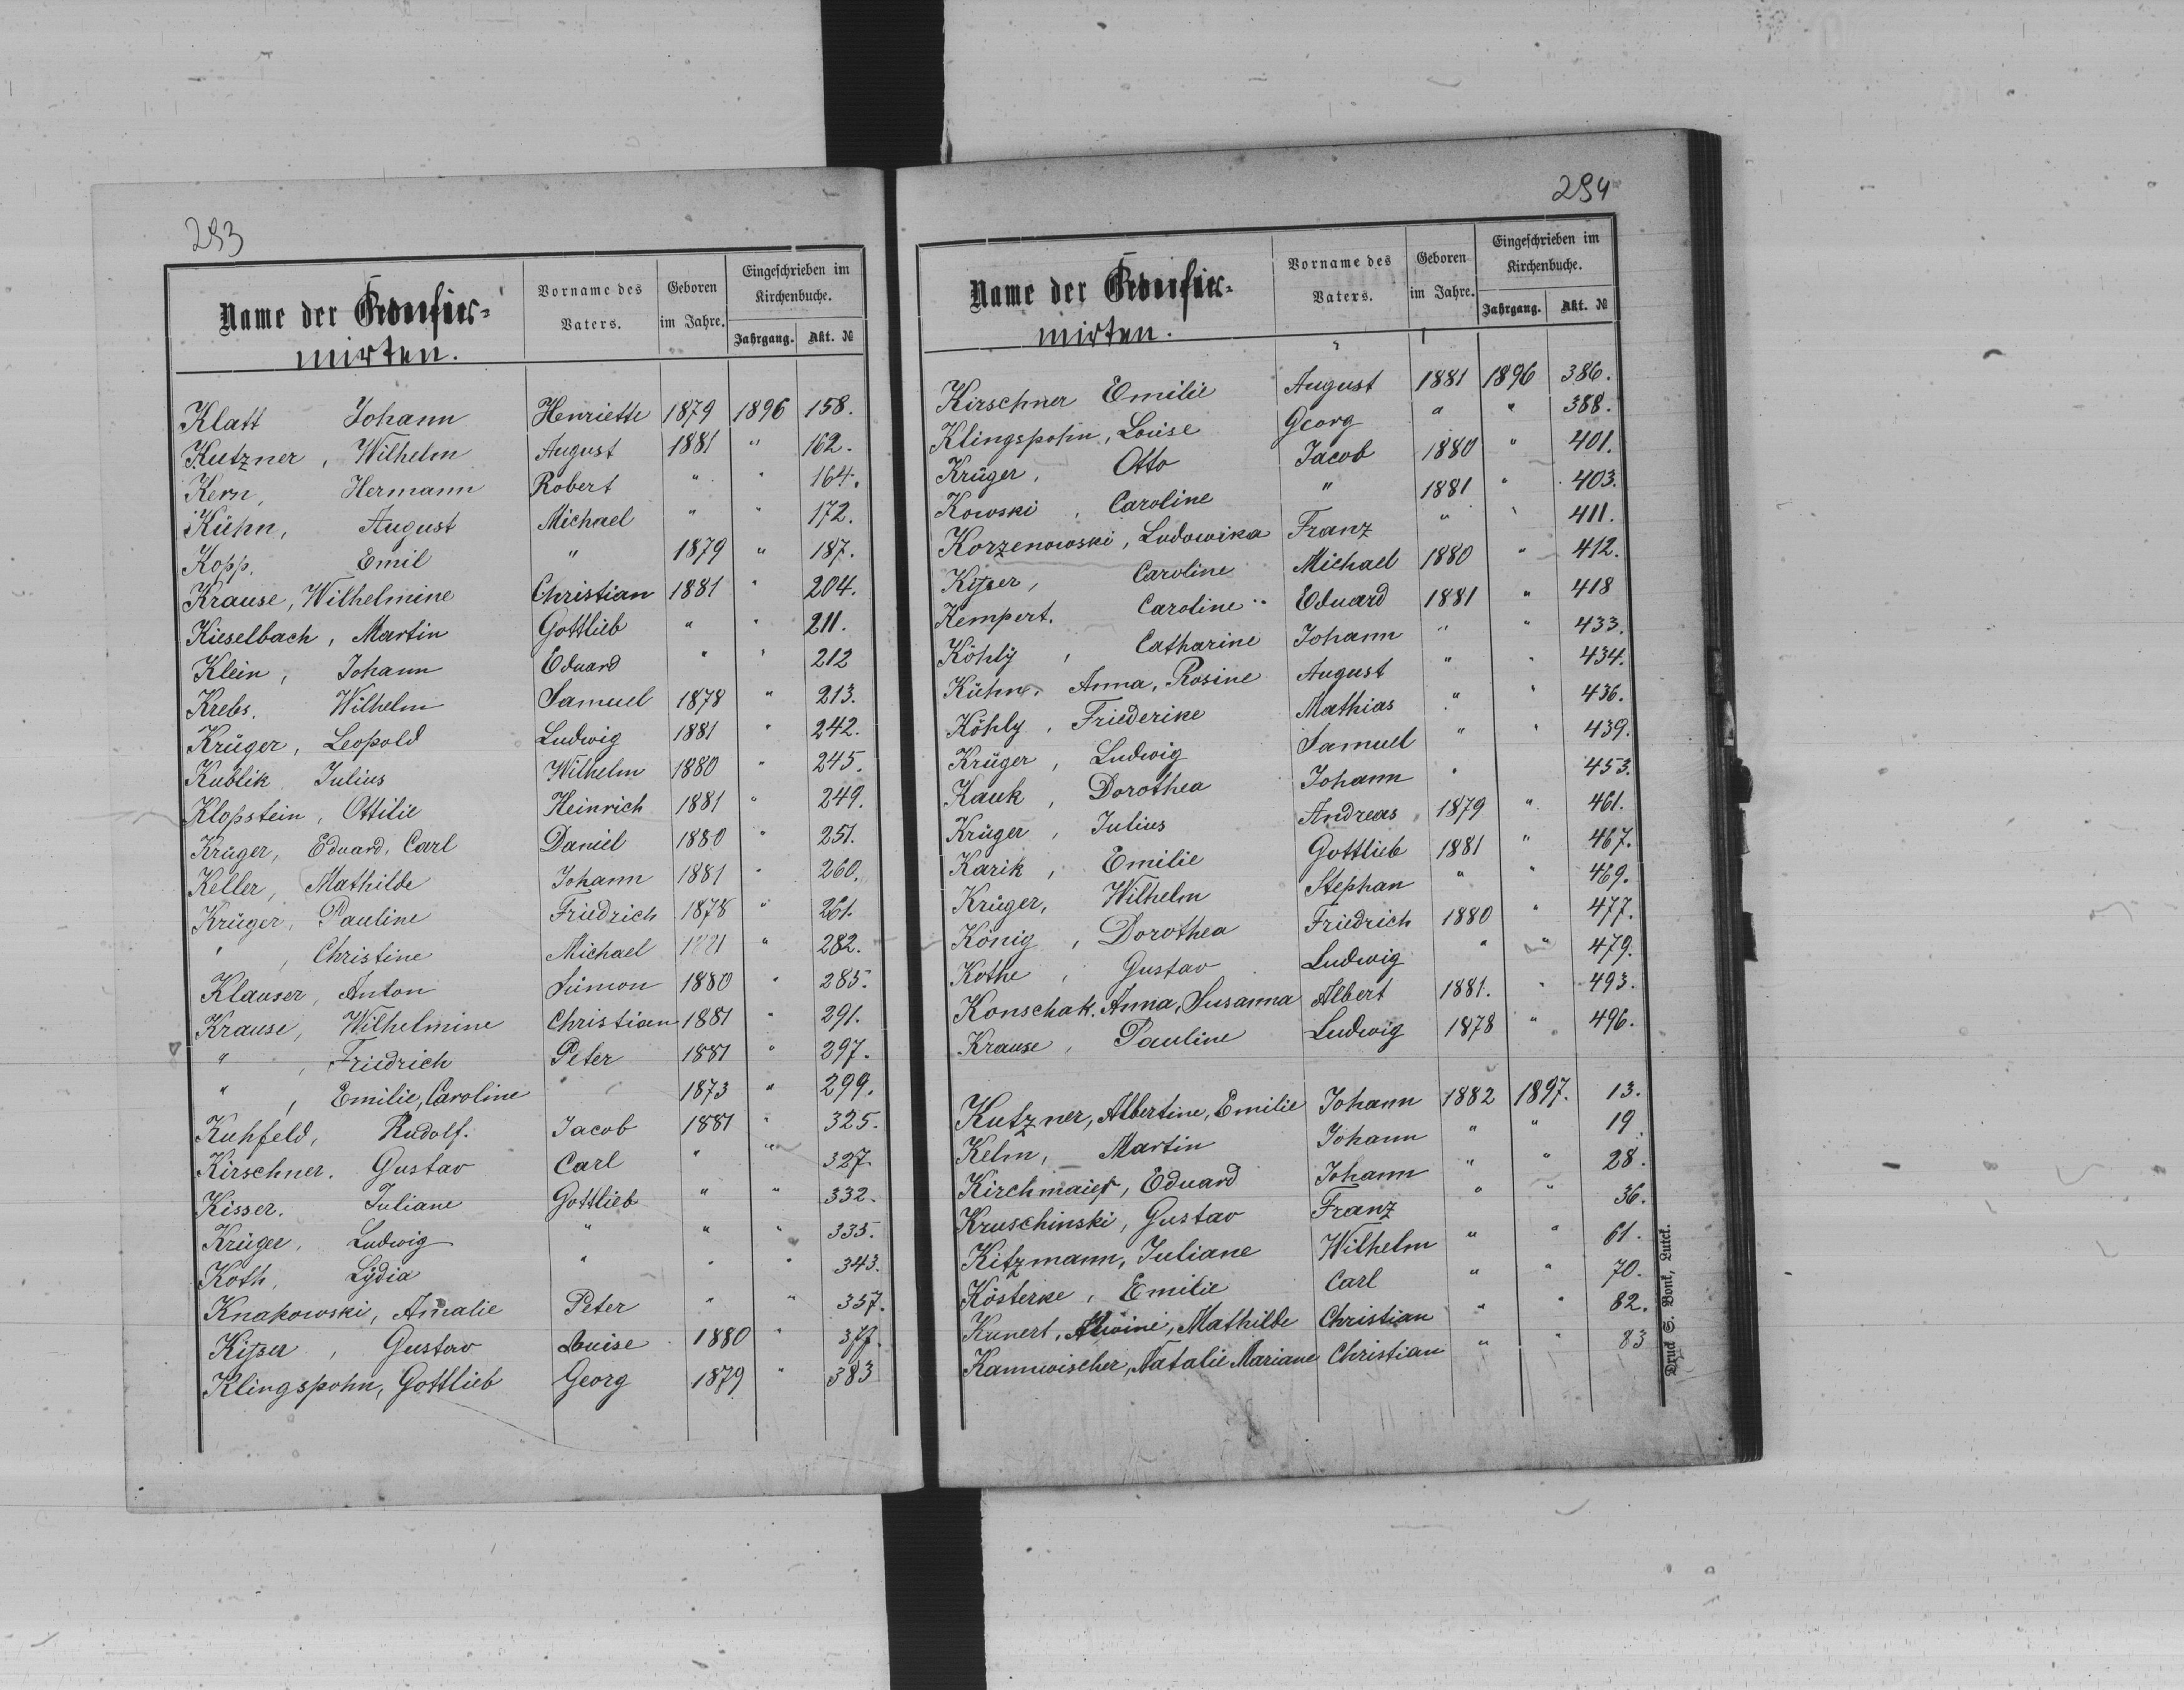 293
Name der Confir-
mirten.
Vorname des Vaters.
Geboren im Jahre.
Eingeschrieben im Kirchenbuche.
Jahrgang. Akt. №
Klatt Johann Henriette 1879 1896 158.
Kutzner, Wilhelm August 1881 " 162.
Kern, Hermann Robert " " 164.
Kühn, August Michael " " 172.
Kopp. Emil " 1879 " 187.
Krause, Wilhelmine Christian 1881 " 204.
Kieselbach, Martin Gottlieb " " 211.
Klein, Johann Eduard " " 212
Krebs. Wilhelm Samuel 1878 " 213.
Krüger, Leopold Ludwig 1881 " 242.
Kublik Julius Wilhelm 1880 " 245.
Klopstein, Ottilie Heinrich 1881 " 249.
Krüger, Eduard, Carl Daniel 1880 " 251.
Keller, Mathilde Johann 1881 " 260.
Krüger, Pauline Friedrich 1878 " 261.
" , Christine Michael 1881 " 282.
Klauser, Anton Simon 1880 " 285.
Krause, Wilhelmine Christian 1881 " 291.
" , Friedrich Peter 1881 " 297.
" , Emilie, Caroline " 1873 " 299.
Kuhfeld, Rudolf. Jacob 1881 " 325.
Kirschner. Gustav Carl " " 327.
Kisser. Juliane Gottlieb " " 332.
Krüger, Ludwig " " " 335.
Koth, Lydia " " " 343.
Knakowski, Amalie Peter " " 357.
Kißer, Gustav Luise 1880 " 377.
Klingspohn, Gottlieb Georg 1879 " 383
294
Name der Confir-
mirten.
Vorname des Vaters.
Geboren im Jahre.
Eingeschrieben im Kirchenbuche.
Jahrgang. Akt. №
Kirschner Emilie August 1881 1896 386.
Klingspohn, Louise Georg " " 388.
Krüger, Otto Jacob 1880 " 401.
Kowski, Caroline " 1881 " 403.
Korzenowski, Ludowika Franz " " 411.
Kißer, Caroline Michael 1880 " 412.
Kempert. Caroline Eduard 1881 " 418
Köhly, Catharine Johann " " 433.
Kühn, Anna, Rosine August " " 434.
Köhly, Friederike Mathias " " 436.
Krüger, Ludwig Samuel " " 439.
Kauk, Dorothea Johann " 453.
Krüger, Julius Andreas 1879 " 461.
Karik, Emilie Gottlieb 1881 " 467.
Krüger, Wilhelm Stephan " " 469.
König, Dorothea Friedrich 1880 " 477.
Kothe, Gustav Ludwig " " 479.
Konschak. Anna, Susanna Albert 1881. " 493.
Krause, Pauline Ludwig 1878 " 496.
Kutzner, Albertine, Emilie Johann 1882 1897. 13.
Kelm, Martin Johann " " 19
Kirchmaier, Eduard Johann " " 28.
Kruschinski, Gustav Franz " " 36.
Kitzmann, Juliane Wilhelm " " 61.
Kösterke, Emilie Carl " " 70.
Kunert, Alwine, Mathilde Christian " " 82.
Kannwischer, Natalie Mariane Christian " " 83
Druck S. Bonk, Lutck.